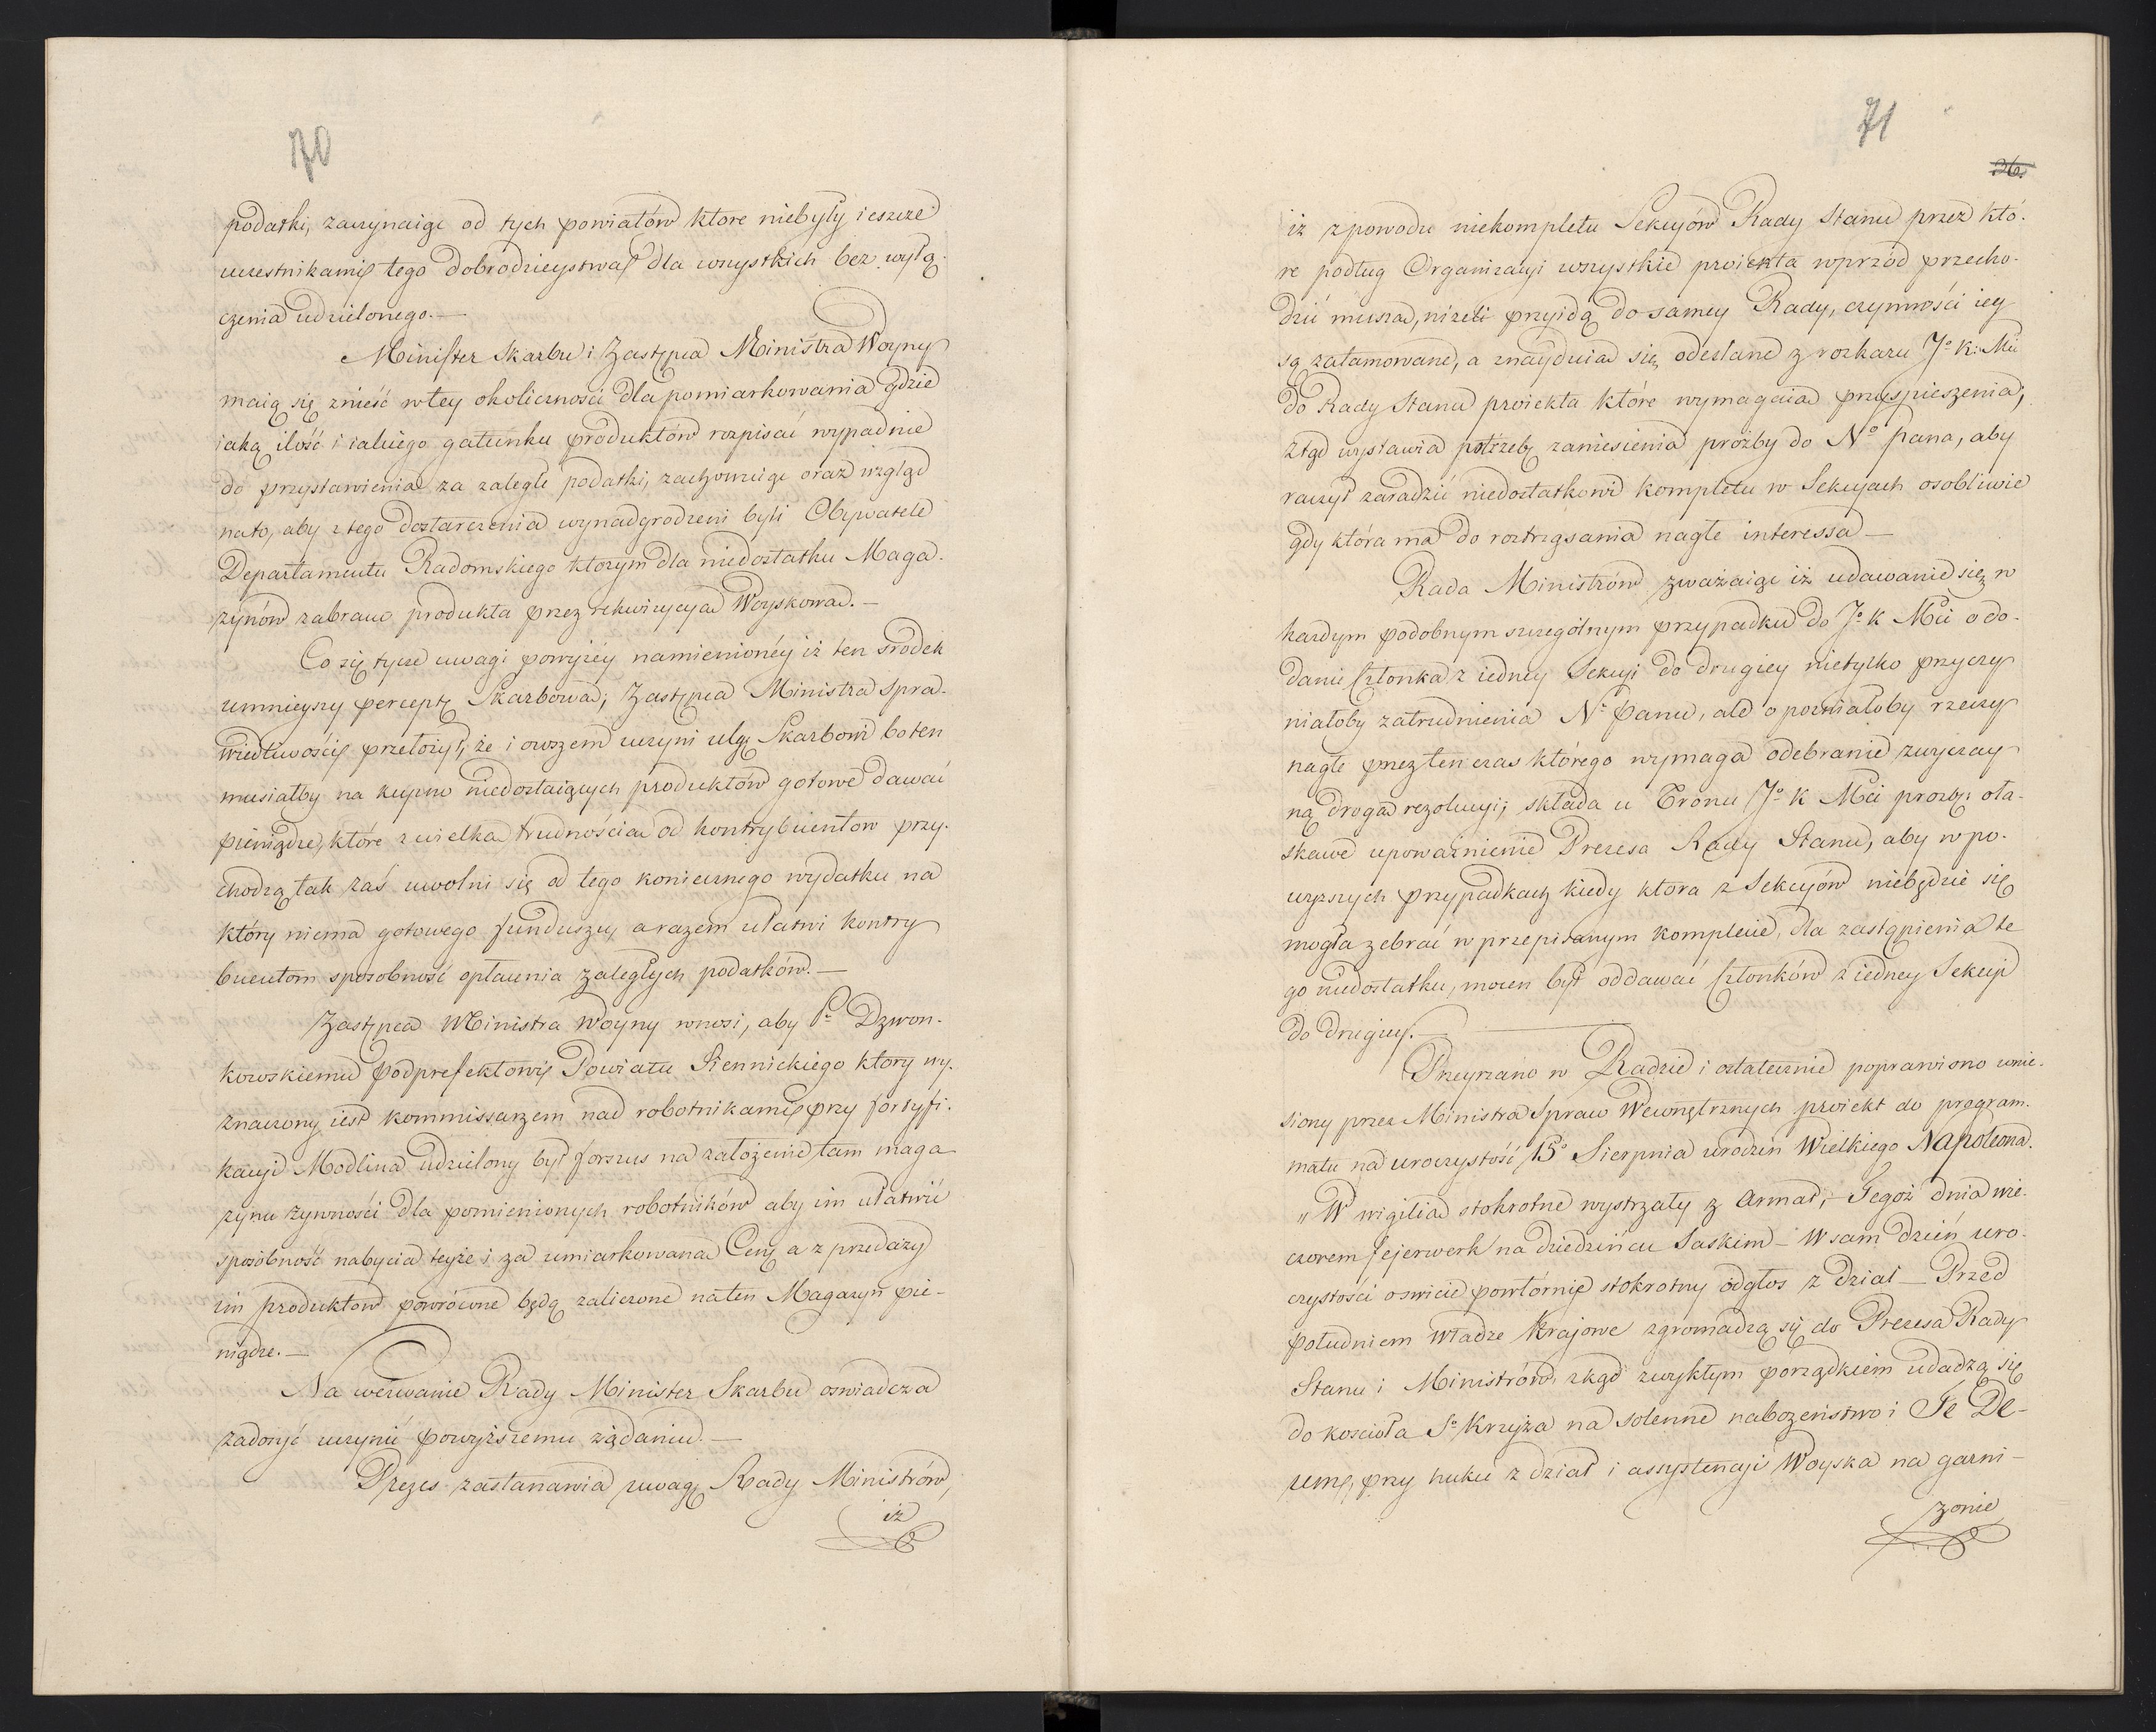 70
podatki, zaczynaiąc od tych powiatów ktore niebyły ieszcze
uczestnikami tego dobrodzieystwa dla wszystkich bez wyłą-
czenia udzielonego.—
Minister Skarbu i Zastępca Ministra Woyny
maią się znieść wtey okoliczności dla pomiarkowania gdzie
iaką ilość i iakiego gatunku produktów rozpisać wypadnie
do przystawienia za zaległe podatki, zachowuiąc oraz wzgląd
nato, aby z tego dostarczenia wynadgrodzeni byli Obywatele
Departamentu Radomskiego ktorym dla niedostatku Maga-
zynów zabrano produkta przez rekwizycyą Woyskową.—
Co się tycze uwagi powyżéy namienionéy iż ten srodek
umnieyszy perceptę Skarbową; Zastępca Ministra Spra-
wiedliwości przełożył, że i owszem uczyni ulgę Skarbowi bo ten
musiałby na kupno niedostaiących produktów gotowe dawać
pieniądze, które z wielką trudnością od kontrybuentow przy-
chodzą tak zaś uwolni się od tego koniecznego wydatku na
który niema gotowego funduszu, a razem ułatwi kontry
buentom sposobność opłacenia zaległych podatków.—
Zastępca Ministra Woyny wnosi, aby P. Dzwon-
kowskiemu Podprefektowi Powiatu Siennickiego ktory wy-
znaczony iest kommissarzem nad robotnikami przy fortyfi-
kacyi Modlina udzielony był forszus na założenie tam maga
zynu żywności dla pomienionych robotników aby im ułatwić
sposobność nabycia teyże i za umiarkowaną Cenę a z przedaży
im produktow powrócone będą zaliczone na ten Magazyn pie-
niądze.—
Na wezwanie Rady Minister Skarbu oswiadcza
zadosyć uczynić powyższemu żądaniu.—
Prezes zastanawia uwagę Rady Ministrów,
iż
71
26.
iż z powodu niekompletu Sekcyów Rady Stanu przez któ-
re podług Organizacyi wszystkie proiekta wprzód przecho-
dzić muszą, niżeli przyidą do samey Rady, czynności iey
są zatamowane, a znayduią się odesłane z rozkazu Jo K: Mci
do Rady Stanu proiekta które wymagaią przyspieszenia;
ztąd wystawia potrzebę zaniesienia prozby do No Pana, aby
raczył zaradzić niedostatkowi kompletu w Sekcyach osobliwie
gdy która ma do roztrząsania nagłe interessa—
Rada Ministrów zważaiąc iż udawanie się w
każdym podobnym szczególnym przypadku do Jo K Mci o do-
danie Członka z iedney Sekcyi do drugiey nietylko przyczy
niałoby zatrudnienia No Panu, ale opozniałoby rzeczy
nagłe przez ten czas którego wymaga odebranie zwyczay
ną drogą rezolucyi; składa u Tronu Jo K Mci prozbę o ła-
skawe upoważnienie Prezesa Rady Stanu, aby w po-
wyższych przypadkach kiedy ktora z Sekcyów niebędzie się
mogła zebrać w przepisanym komplecie, dla zastąpienia te
go niedostatku, mocen był oddawać Członków z iedney Sekcyi
do drugiey.—
Przeyrzano w Radzie i ostatecznie poprawiono wnie-
siony przez Ministra Spraw Wewnętrznych proiekt do program-
matu na uroczystość 15o Sierpnia urodzin Wielkiego Napoleona.
„W wigilią stokrotne wystrzały z Armat,— Tegoż dnia wie-
czorem fejerwerk na dziedzińcu Saskim— W sam dzień uro-
czystości o swicie powtórnie stokrotny odgłos z dział— Przed
południem Władze Krajowe zgromadzą się do Prezesa Rady
Stanu i Ministrów, zkąd zwykłym porządkiem udadzą się
do kościoła So Krzyża na solenne nabożeństwo i Te De-
um, przy huku z dział i assystencyi Woyska na garni-
zonie